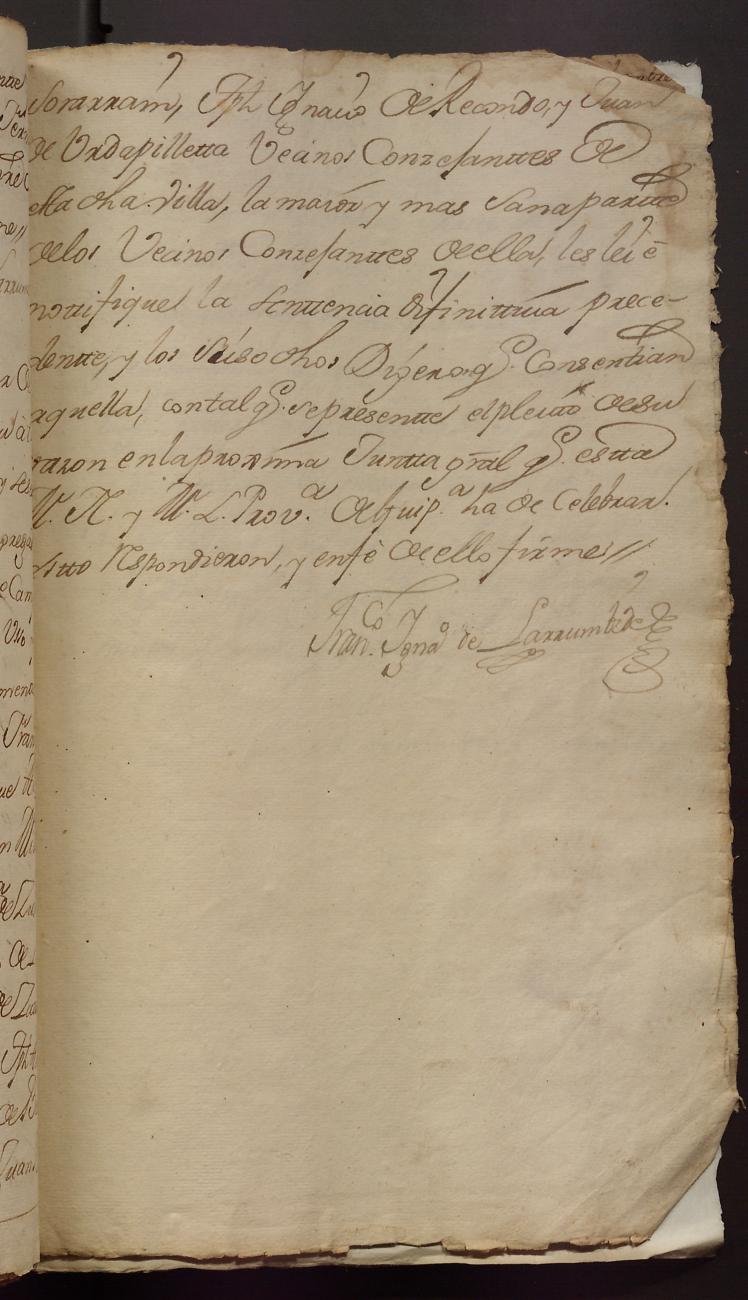 Sorarrain, Jph Ignacio de Recondo, y Juan
de Urdapilletta Vecinos Conzejanttes de
esta dha Villa, la maior y mas sana partte
de los Vecinos Conzejanttes de ella, les lei è
nottifique la senttencia difinittiva prece-
dentte, y los susodhos Digeron q.e Consentian
aquella, con tal q.e se presentte el pleito de su
razon en la proxima Juntta gral q.e estta
M. N. y M. L. Prov.a de Guip.a ha de Celebrar.
Estto respondieron, y en fè de ello firme //
Fran.co Igna.o de Larrumbide